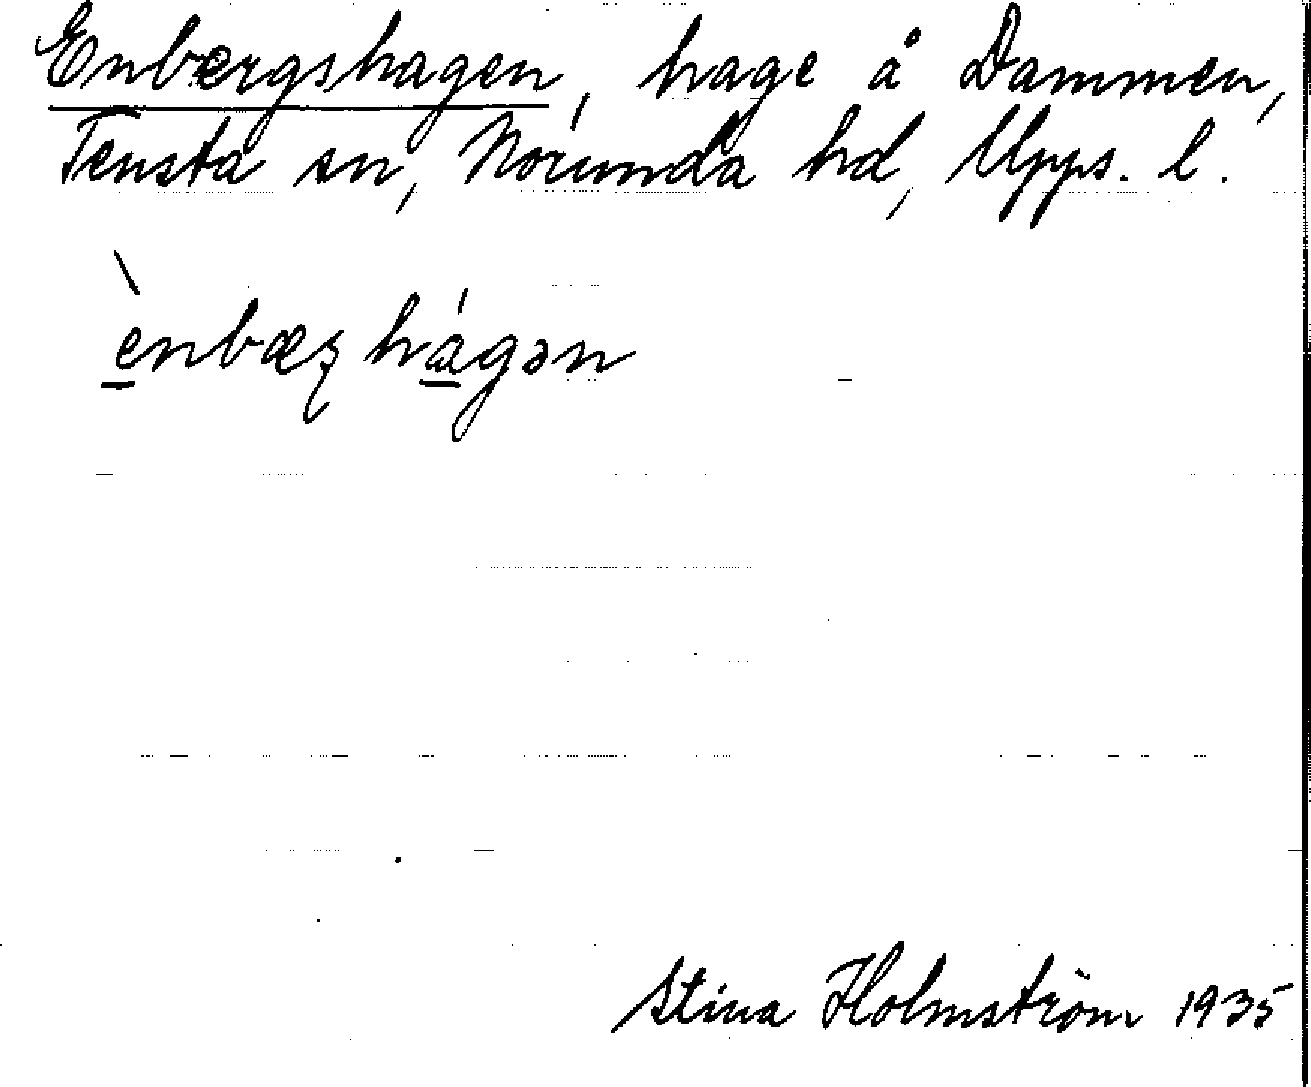 Enbergshagen, hage å Dammen,
Tensta sn, Norunda hd, Upps. l.
ènbæʂhágən
Stina Holmström 1935